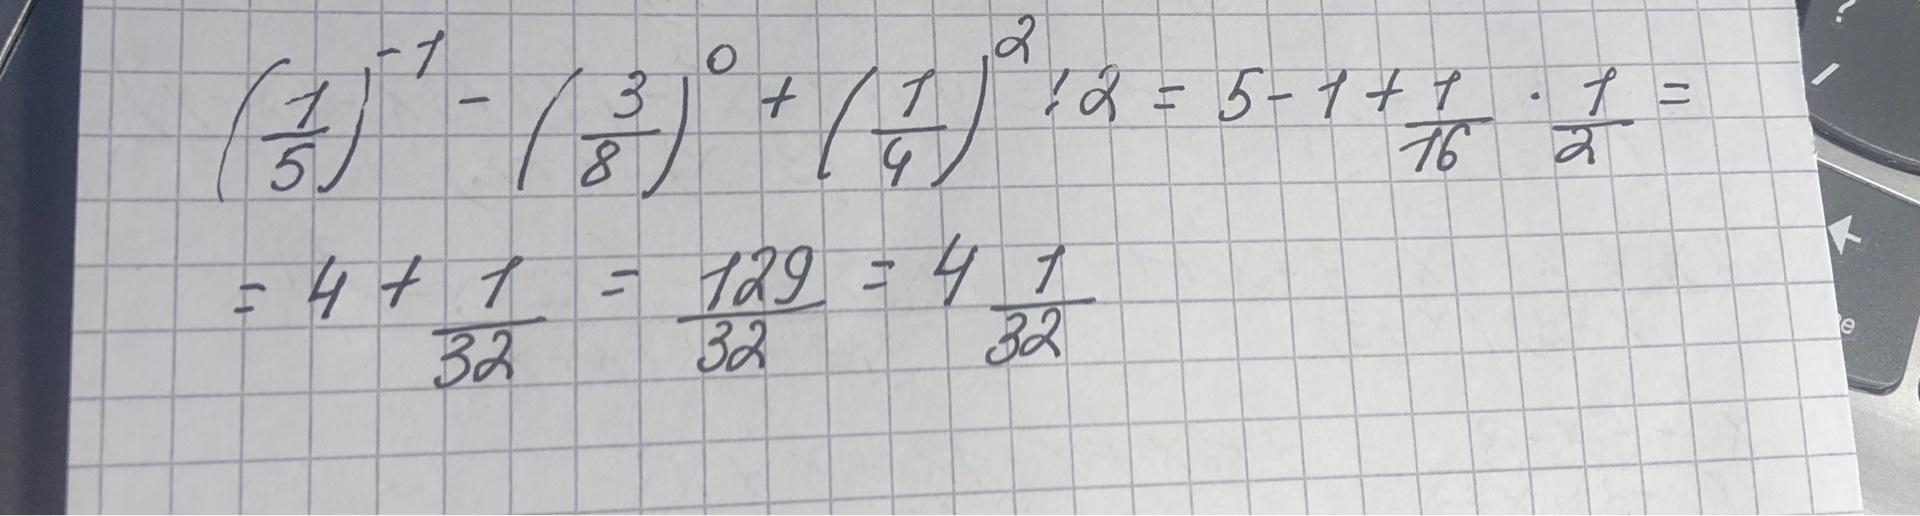 (1/5)^-1 - (3/8)^0 + (1/4)^2 : 2 = 5 - 1 + 1/16 · 1/2 =
= 4 + 1/32 = 129/32 = 4 1/32